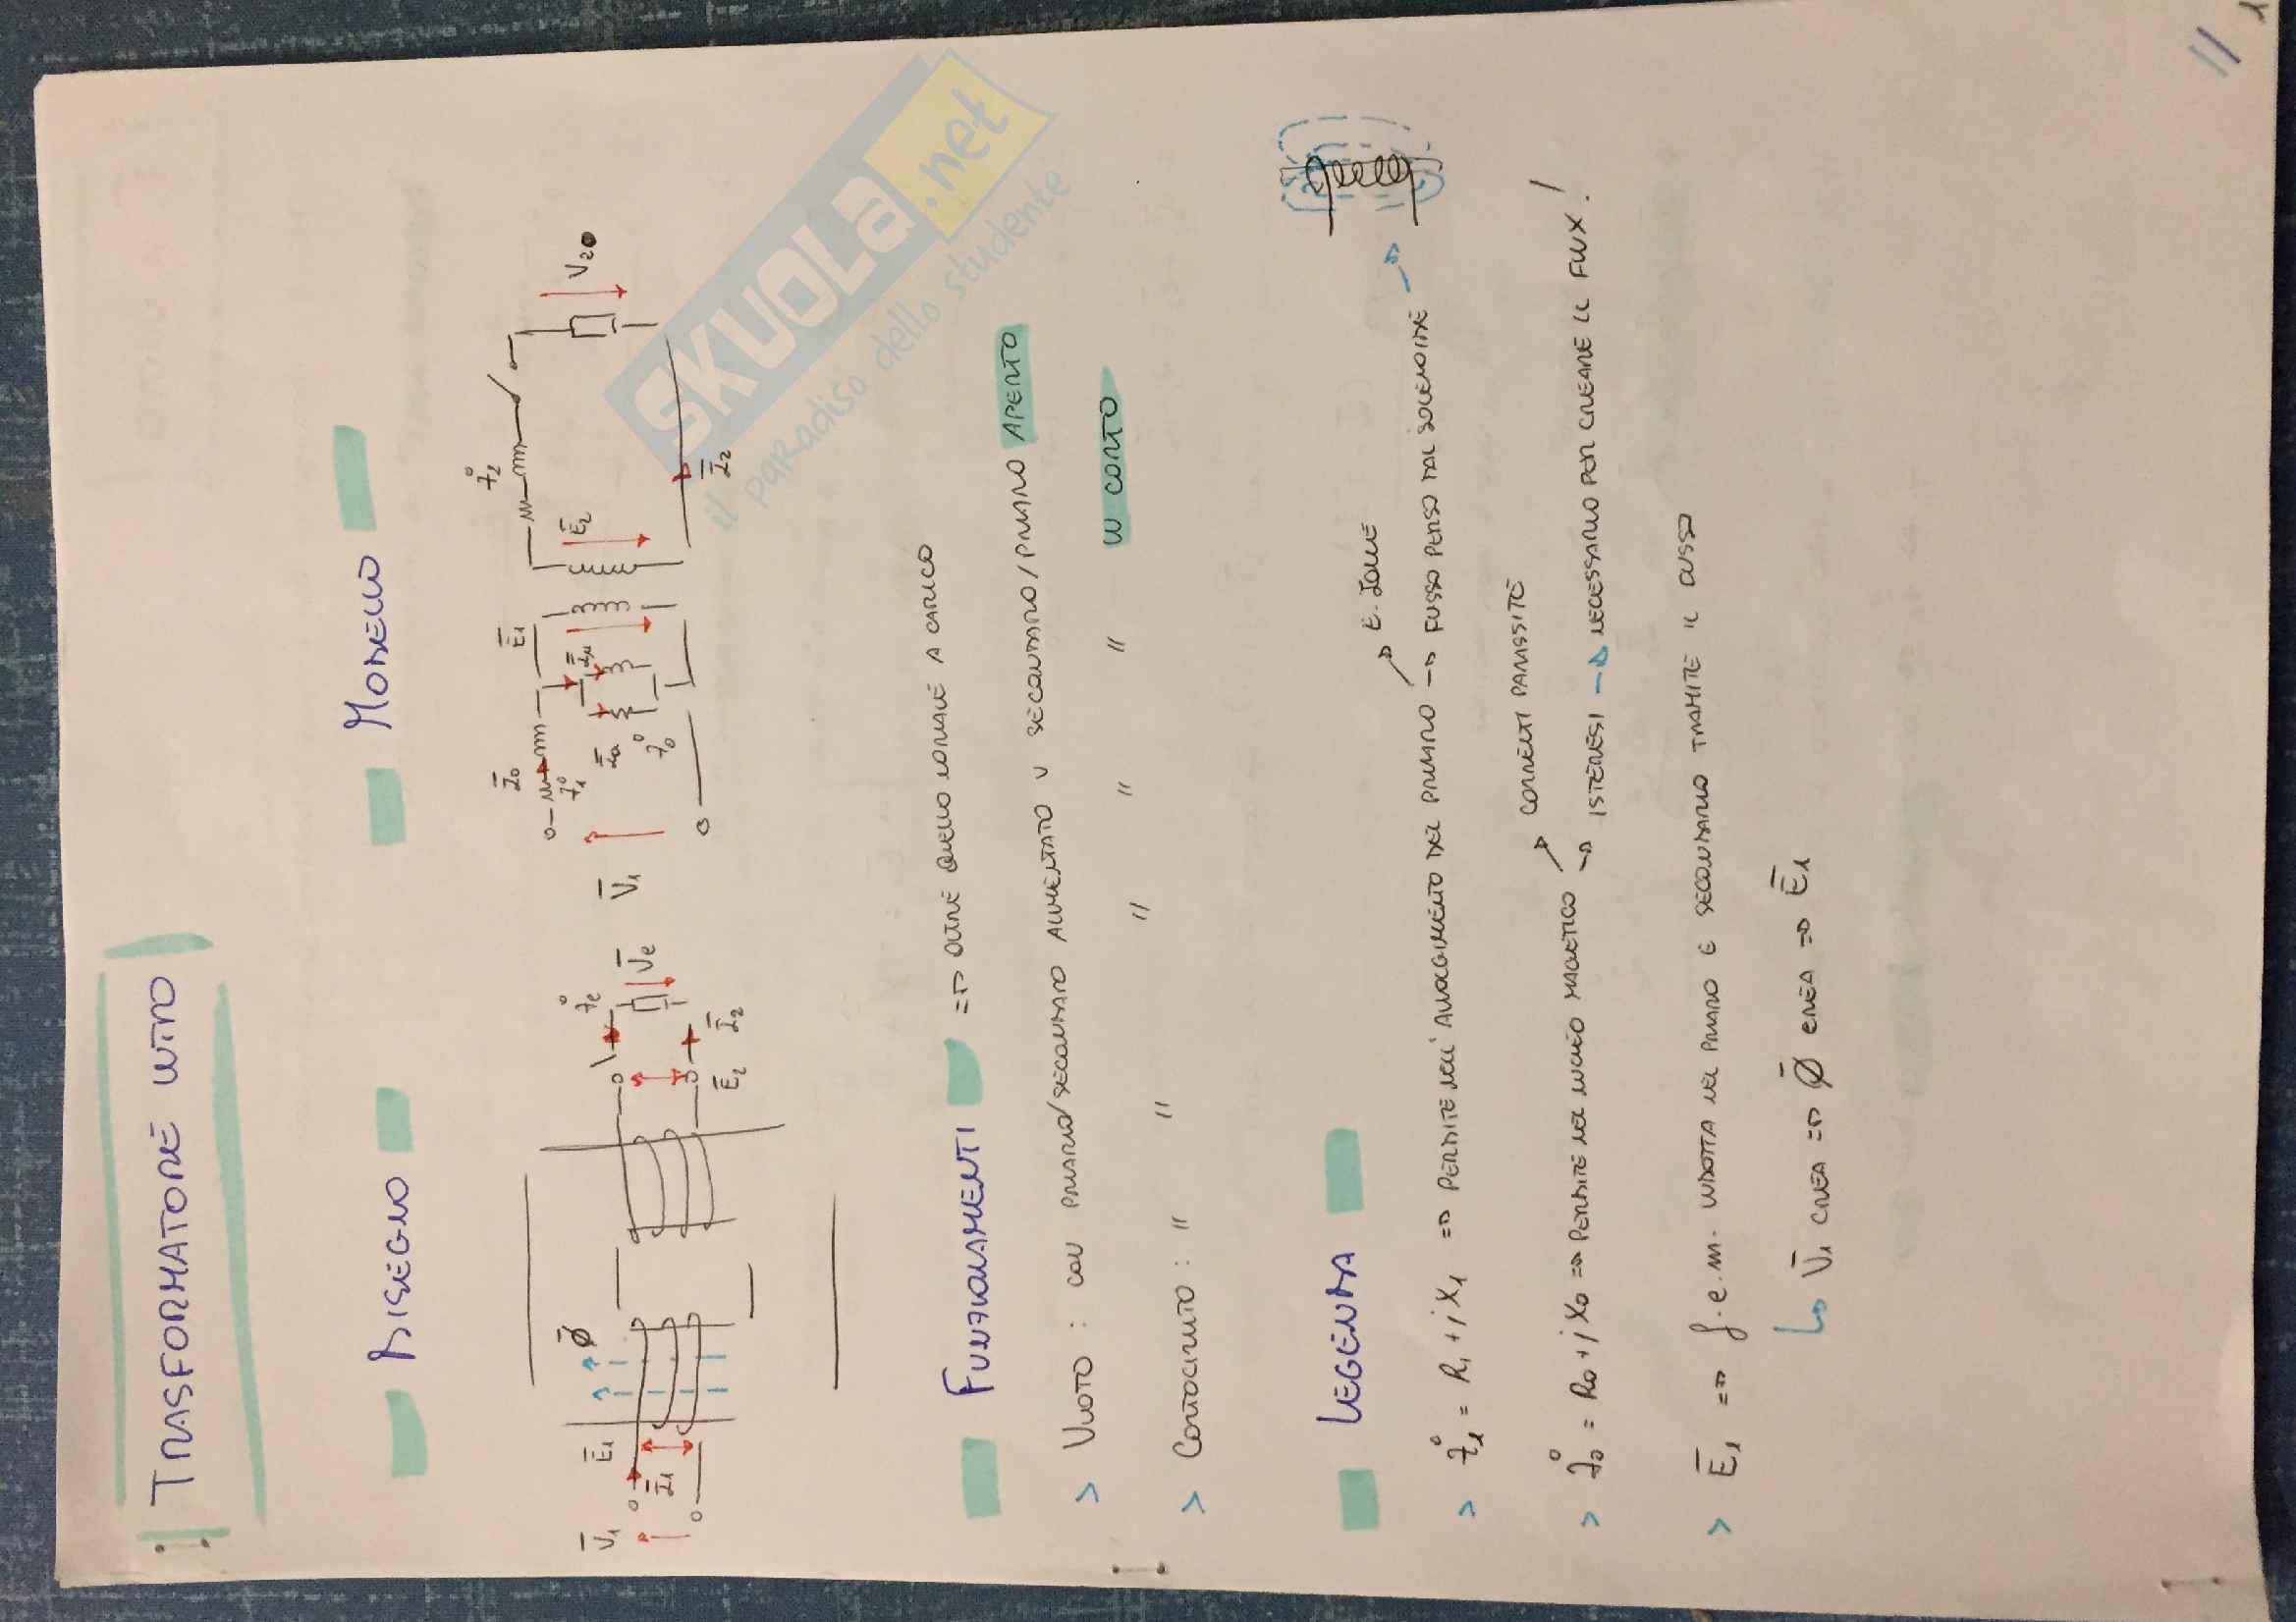 TRASFORMATORE INTRO
DISEGNO
MODELLO
V̄₁ Ē₁ Ī₁ Φ̄ Ē₂ Ī₂ Żc V̄c
V̄₁ Ī₀ Ż₁ Īa Ż₀ Īμ Ē₁ Ē₂ Ż₂ Ī₂ V₂₀
FUNZIONAMENTI => OLTRE QUELLO NORMALE A CARICO
> VUOTO : CON PRIMARIO/SECONDARIO ALIMENTATO E SECONDARIO/PRIMARIO APERTO
> CORTOCIRCUITO : " " " " " IN CORTO
LEGENDA
> Ż₁ = R₁ + jX₁ => PERDITE NELL'AVVOLGIMENTO DEL PRIMARIO → E. JOULE
→ FLUSSO PERSO DAL SOLENOIDE →
> Ż₀ = R₀ + jX₀ => PERDITE NEL NUCLEO MAGNETICO → CORRENTI PARASSITE
→ ISTERESI → NECESSARIO PER CREARE IL FLUX!
> Ē₁ => f.e.m. INDOTTA NEL PRIMARIO E SECONDARIO TRAMITE IL FLUSSO
↳ V̄₁ CREA => Φ̄ CREA => Ē₁
SKUOLA.net
il paradiso dello studente